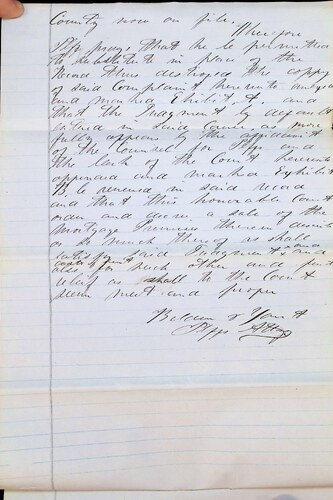 County now on file.
Wherefore
Plff prays that he be permitted
to substitute in place of the
record thus destroyed the copy
of said Complaint hereunto annexed
and marked Exhibit A. and
that the Judgment by default
entered in said cause as more
fully appears by the affidavit
of the Counsel for Plffs and
the Clerk of the Court hereunto
appended and marked Exhibit
B. be renewed in said record
and that this honorable Court
order and decree a sale of the
Mortgage Premises therein described
or so much thereof as shall
satisfy said Judgment and
costs of suit
also for such other and further
relief as shall to the Court
seem meet and proper
Belden &
Plffs Attys